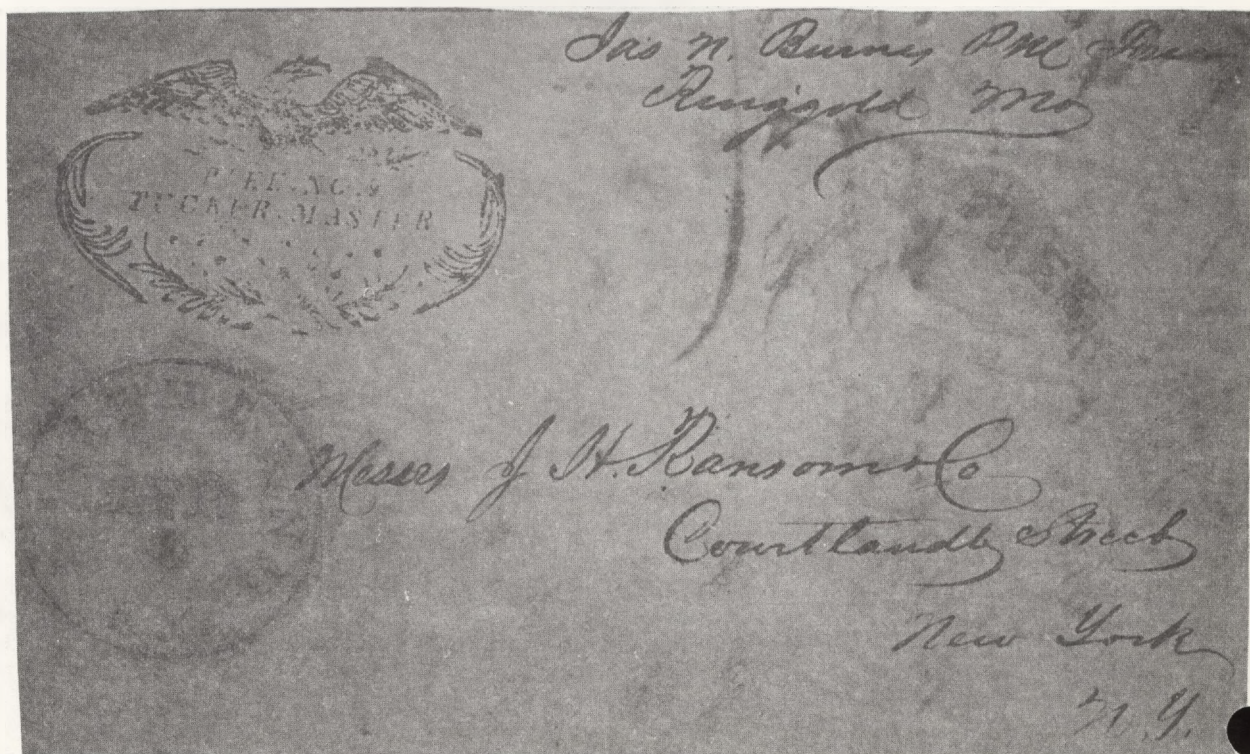 Jas N. Burnes PM Free
Ringgold Mo
TUCKER. MASTER
Messrs J H. Ransom & Co
Courtlandt Street
New York
N. Y.